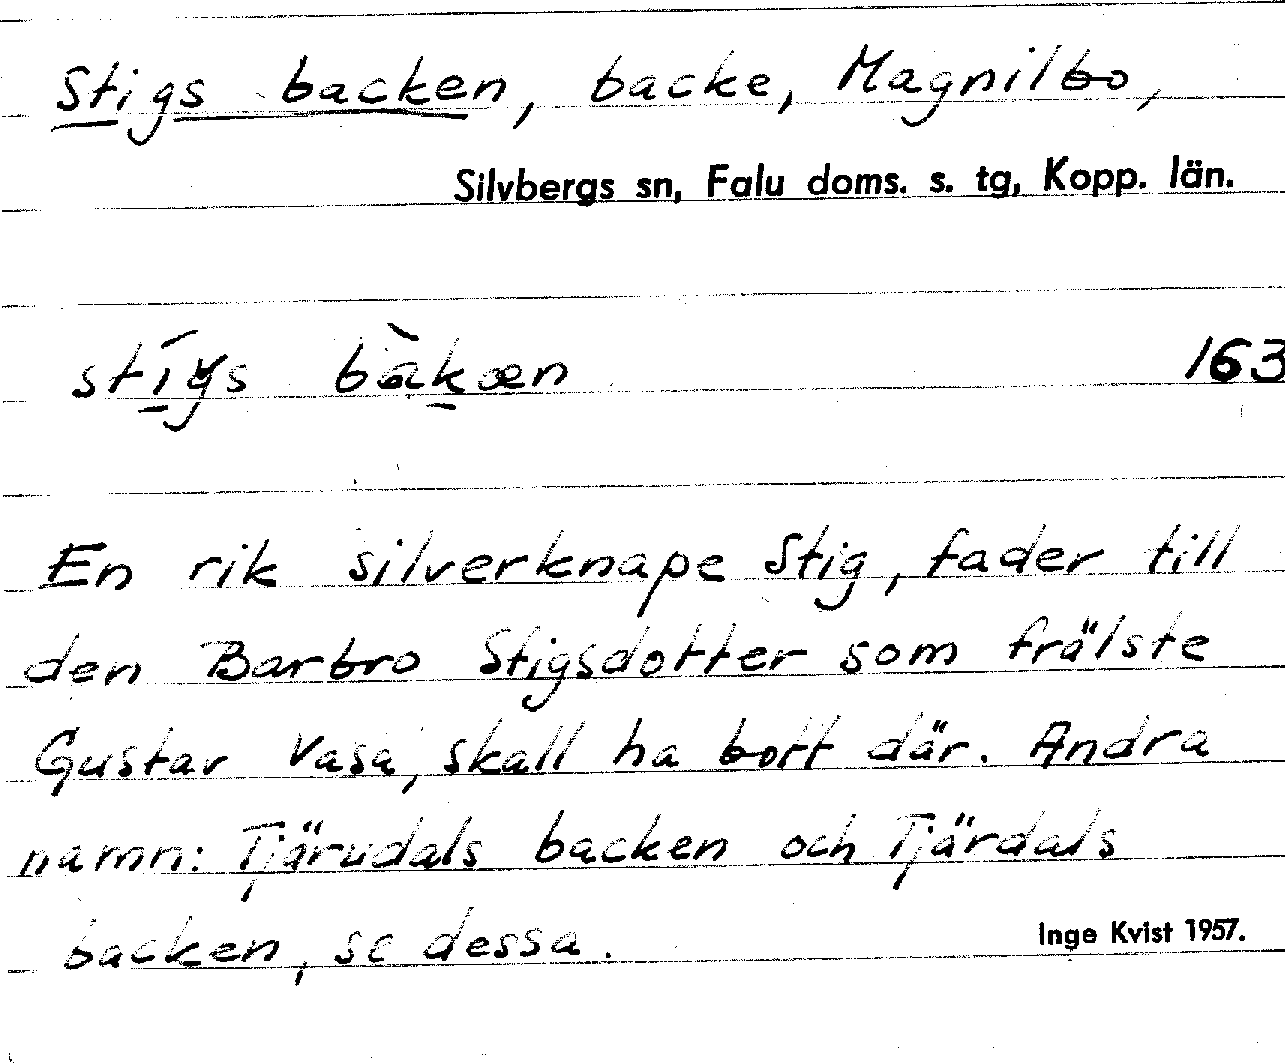 Stigs backen, backe, Magnilbo,
Silvbergs sn, Falu doms. s. tg, Kopp. län.
bàkæn 163
En rik silverknape Stig, fader till
den Barbro Stigsdotter som frälste
Gustav Vasa, skall ha bott där. Andra
namn: Tjärudals backen och Tjärdals
backen, se dessa. Inge Kvist 1957.